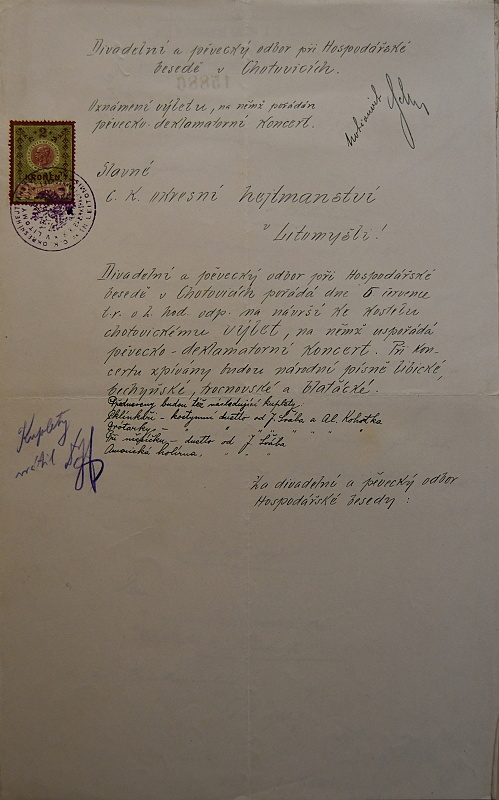 Divadelní a pěvecký odbor při Hospodářské
besedě v Chotovicích.
Oznámení výletu, na němž pořádán
pěvecko-deklamatorní koncert.
2
KORUNY
Slavné
C. K. okresní hejtmanství
v Litomyšli!
Divadelní a pěvecký odbor při Hospodářské
besedě v Chotovicích pořádá dne 5 července
t.r. o 2. hod. odp. na návrší ke kostelu
chotovickému výlet, na němž uspořádá
pěvecko-deklamatorní koncert. Při kon-
certu zpívány budou národní písně
a Blaťácké.
budou též následující kuplety:
kostymní duetto od J. Švába a Al. Kohotka
" " " " " " "
duetto od J. Švába
Kuplety
vrátil
Za divadelní a pěvecký odbor
Hospodářské besedy: